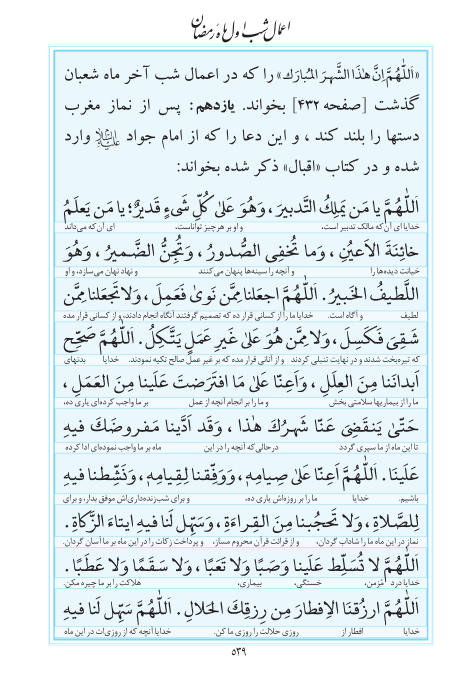 اعمال شب اول ماه رمضان
«اَللّٰهُمَّ اِنَّ هٰذَا الشَّهرَ المُبارَك» را که در اعمال شب آخر ماه شعبان
گذشت [صفحه ۴۳۲] بخواند. یازدهم: پس از نماز مغرب
دستها را بلند کند ، و این دعا را که از امام جواد علیه‌السلام وارد
شده و در کتاب «اقبال» ذکر شده بخواند:
اَللّٰهُمَّ يا مَن يَملِكُ التَّدبيرَ ، وَهُوَ عَلىٰ كُلِّ شَيءٍ قَديرٌ؛ يا مَن يَعلَمُ
خدایا ای آن که مالک تدبیر است، و او بر هر چیز تواناست، ای آن که می‌داند
خائِنَةَ الاَعيُنِ ، وَما تُخفِى الصُّدورُ ، وَتُجِنُّ الضَّميرُ ، وَهُوَ
خیانت دیده‌ها را و آنچه را سینه‌ها پنهان می‌کنند و نهاد نهان می‌سازد، و او
اللَّطيفُ الخَبيرُ . اَللّٰهُمَّ اجعَلنا مِمَّن نَوىٰ فَعَمِلَ ، وَلا تَجعَلنا مِمَّن
لطیف و آگاه است. خدایا ما را از کسانی قرار ده که تصمیم گرفتند آنگاه انجام دادند، و از کسانی قرار مده
شَقِىَ فَكَسِلَ ، وَلا مِمَّن هُوَ عَلىٰ غَيرِ عَمَلٍ يَتَّكِلُ . اَللّٰهُمَّ صَحِّح
که تیره‌بخت شدند و در نهایت تنبلی کردند و از آنانی قرار مده که بر غیر عمل صالح تکیه نمودند. خدایا بدنهای
اَبدانَنا مِنَ العِلَلِ ، وَاَعِنّا عَلىٰ مَا افتَرَضتَ عَلَينا مِنَ العَمَلِ ،
ما را از بیماریها سلامتی بخش و ما را بر انجام آنچه از عمل بر ما واجب کرده‌ای یاری ده،
حَتّىٰ يَنقَضِىَ عَنّا شَهرُكَ هٰذا ، وَقَد اَدَّينا مَفروضَكَ فيهِ
تا این ماه از ما سپری گردد در حالی که آنچه را در این ماه بر ما واجب نموده‌ای ادا کرده
عَلَينا . اَللّٰهُمَّ اَعِنّا عَلىٰ صِيامِهِ ، وَوَفِّقنا لِقِيامِهِ ، وَنَشِّطنا فيهِ
باشیم. خدایا ما را بر روزه‌اش یاری ده، و برای شب‌زنده‌داری‌اش موفق بدار، و برای
لِلصَّلاةِ ، وَلا تَحجُبنا مِنَ القِراءَةِ ، وَسَهِّل لَنا فيهِ ايتاءَ الزَّكاةِ .
نماز در این ماه ما را شاداب گردان، و از قرائت قرآن محروم مساز، و پرداخت زکات را در این ماه بر ما آسان گردان.
اَللّٰهُمَّ لا تُسَلِّط عَلَينا وَصَبًا وَلا تَعَبًا ، وَلا سَقَمًا وَلا عَطَبًا .
خدایا درد مُزمن، خستگی، بیماری، هلاکت را بر ما چیره مکن.
اَللّٰهُمَّ ارزُقنَا الاِفطارَ مِن رِزقِكَ الحَلالِ . اَللّٰهُمَّ سَهِّل لَنا فيهِ
خدایا افطار از روزی حلالت را روزی ما کن. خدایا آنچه که از روزی‌ات در این ماه
۵۳۹